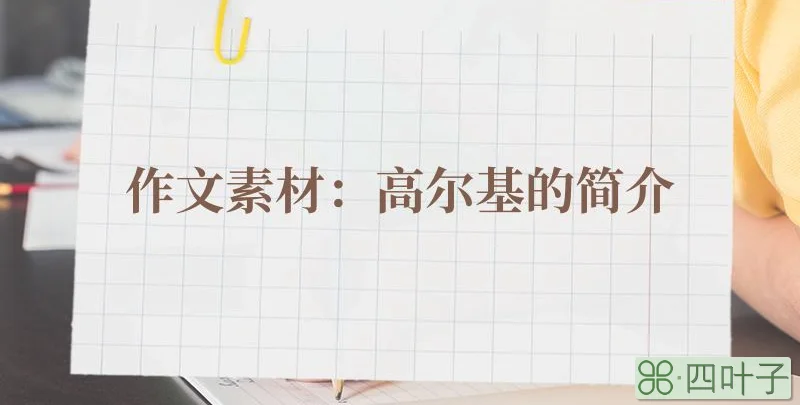 作文素材：高尔基的简介
四叶子